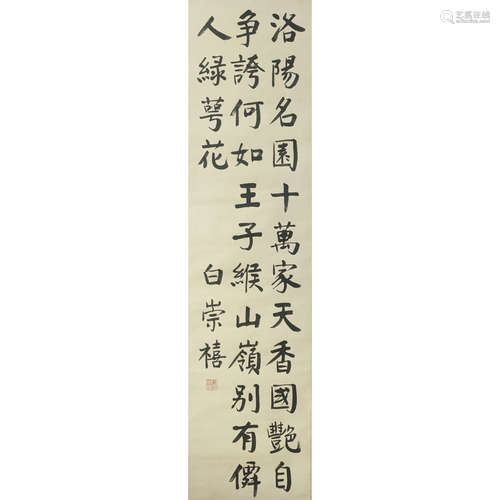 洛陽名園十萬家天香國艷自
争誇何如王子緱山嶺别有僊
人緑萼花
白崇禧